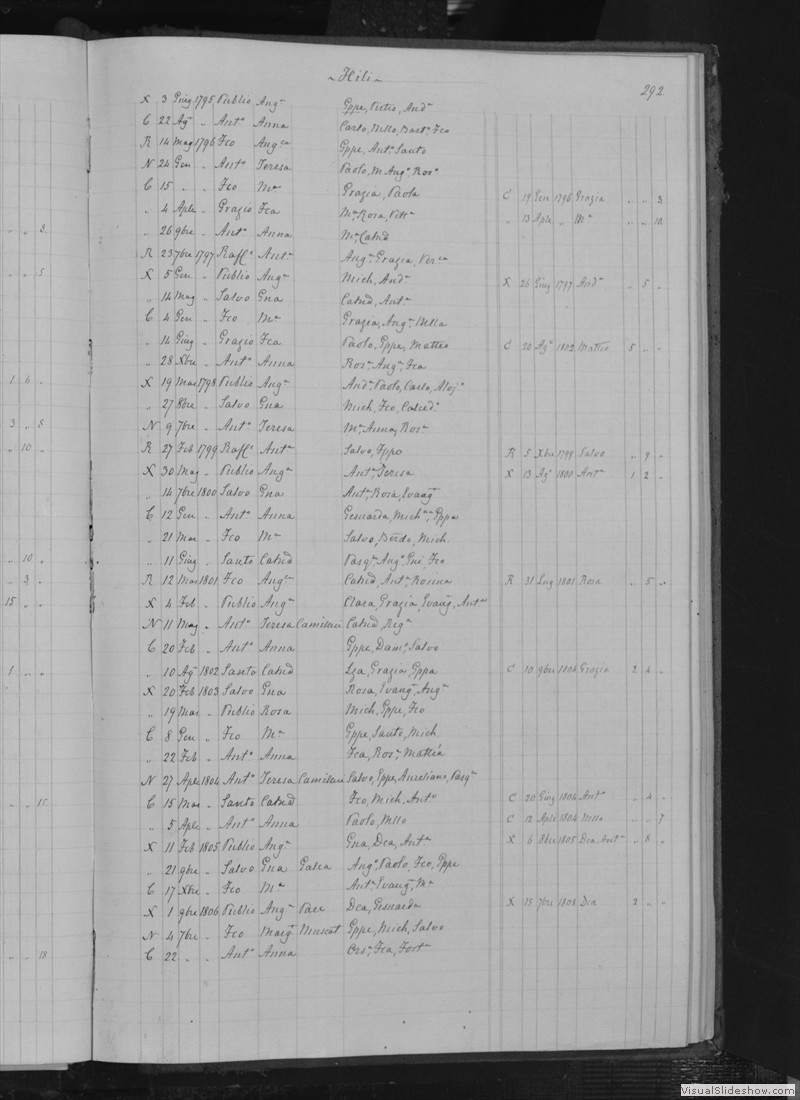 ~ Hili ~
292
X 3 Giug 1795 Publio Angª Gppe, Pietro, Andª
C 22 Agº " Antº Anna Carlo, Mllo, Bartº, Fco
R 14 Mag 1796 Fco Angca Gppe, Antº, Santo
N 24 Gen " Antº Teresa Paolo, M Angº, Rosª
C 15 " " Fco Mª Grazia, Paola C 19 Gen 1796 Grazia " " 3
" 4 Aple " Grazio Fca Mª, Rosa, Vittª " 13 Aple " Mª " " 10
" 26 9bre " Antº Anna Mª, Catnd " " 3
R 23 7bre 1797 Raflº Antª Angª, Grazia, Verca
X 5 Gen " Publio Angª Mich, Andª X 26 Giug 1797 Andª " 5 " " " 5
" 14 Mag " Salvo Gna Catnd, Antª
C 4 Gen " Fco Mª Grazia, Angª, Mlla
" 14 Giug " Grazio Fca Paolo, Gppe, Matteo C 20 Agº 1802 Matteo 5 " "
" 28 Xbre " Antº Anna Rosª, Angª, Fca
X 19 Mar 1798 Publio Angª Andª, Paolo, Carlo, Alojº 1 6 "
" 27 8bre " Salvo Gna Mich, Fco, Catndª
N 9 7bre " Antº Teresa Mª, Anna, Rosª 3 " 5
R 27 Feb 1799 Raflº Antª Salvo, Fppo R 5 Xbre 1799 Salvo " 9 " " 10 "
X 30 Mag " Publio Angª Antª, Teresa X 13 Agº 1800 Antª 1 2 "
" 14 7bre 1800 Salvo Gna Antª, Rosa, Evangª
C 12 Gen " Antº Anna Gesuarda, Michna, Gppa
" 21 Mar " Fco Mª Salvo, Berdo, Mich
" 11 Giug " Santo Catnd Pasqª, Angº, Gni, Fco " 10 "
R 12 Mar 1801 Fco Angca Catnd, Antª, Rosina R 31 Lug 1801 Rosa " 5 " " 3 "
X 4 Feb " Publio Angª Clara, Grazia, Evangª, Antª 15 " "
N 11 Mag " Antº Teresa Camilleri Catnd, Regª
C 20 Feb " Antº Anna Gppe, Damº, Salvo
" 10 Agº 1802 Santo Catnd Lza, Grazia, Gppa C 10 9bre 1804 Grazia 2 4 " 1 " "
X 20 Feb 1803 Salvo Gna Rosa, Evangª, Angª
" 19 Mar " Publio Rosa Mich, Gppe, Fco
C 8 Gen " Fco Mª Gppe, Santo, Mich
" 22 Feb " Antº Anna Fca, Rosª, Mattea
N 27 Aple 1804 Antº Teresa Camilleri Salvo, Gppe, Aureliano, Pasqª
C 15 Mar " Santo Catnd Fco, Mich, Antº C 20 Giug 1804 Antº " 4 " " " 15
" 5 Aple " Antº Anna Paolo, Mllo C 12 Aple 1804 Mllo " " 7
X 11 Feb 1805 Publio Angª Gna, Dca, Antª X 6 8bre 1805 Dca Antª " 8 "
" 21 9bre " Salvo Gna Galea Angº, Paolo, Fco, Gppe
C 17 Xbre " Fco Mª Antª, Evangª, Mª
X 1 9bre 1806 Publio Angª Pace Dca, Gesuarda X 15 7bre 1808 Dca 2 " "
N 4 7bre " Fco Margª Muscat Gppe, Mich, Salvo
C 22 " " Antº Anna Orsª, Fca, Fortª " " 18
VisualSlideshow.com